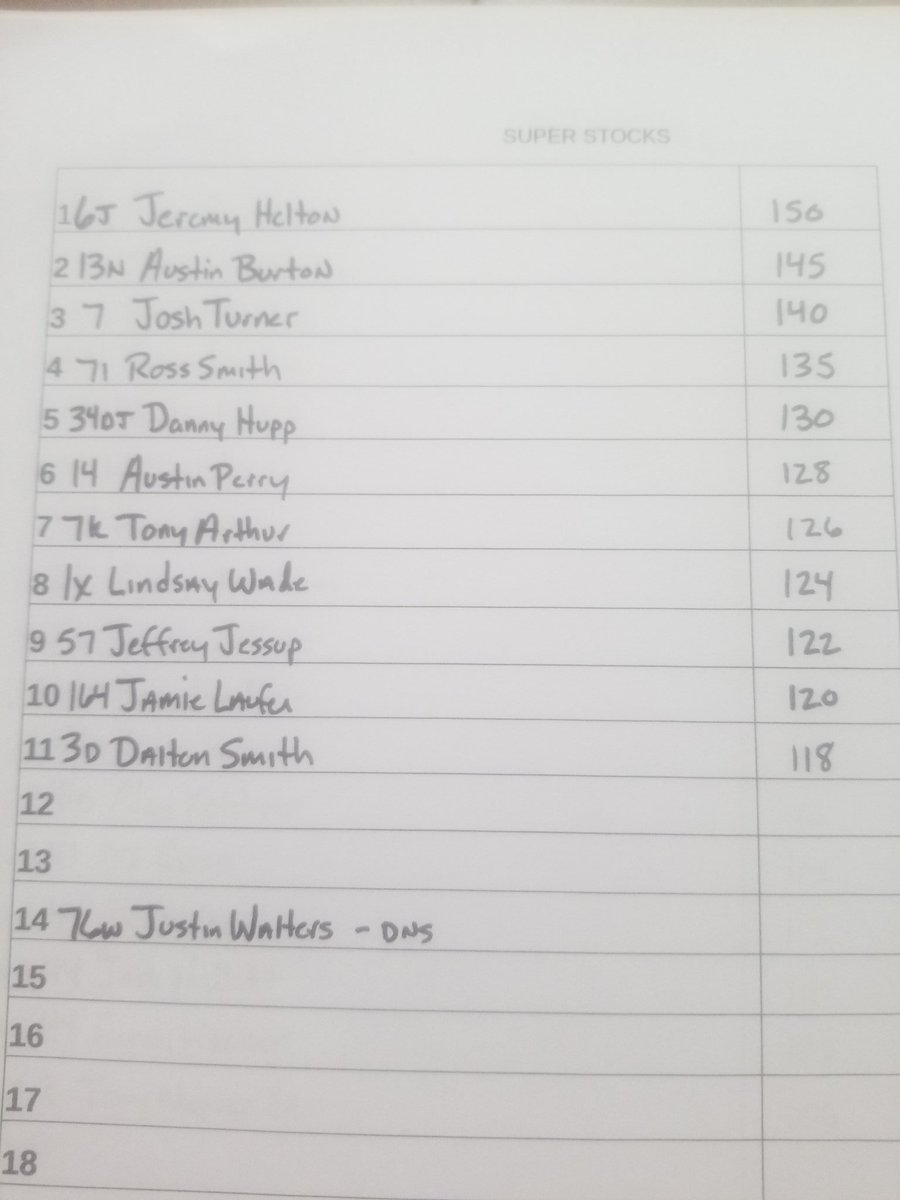 SUPER STOCKS
1 6J Jeremy Helton 150
2 13N Austin Burton 145
3 7 Josh Turner 140
4 71 Ross Smith 135
5 34DJ Danny Hupp 130
6 14 Austin Perry 128
7 7k Tony Arthur 126
8 1x Lindsay Wade 124
9 57 Jeffrey Jessup 122
10 164 Jamie Laufer 120
11 3D Dalton Smith 118
12
13
14 76w Justin Walters - DNS
15
16
17
18